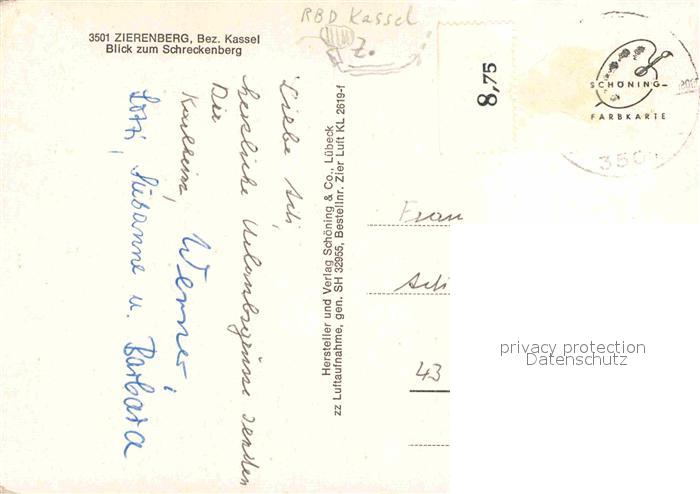 3501 ZIERENBERG, Bez. Kassel
Blick zum Schreckenberg
RBD Kassel
Z.
8,75
SCHÖNING
FARBKARTE
350
Liebe Adi,
herzliche Urlaubsgrüsse senden
Die
Karlheinz,
Werner,
Lotti, Susanne u. Barbara
Hersteller und Verlag Schöning & Co., Lübeck
zz Luftaufnahme, gen. SH 32955, Bestellnr. Zier Luft KL 2619-f
Frau
Adi
43
privacy protection
Datenschutz